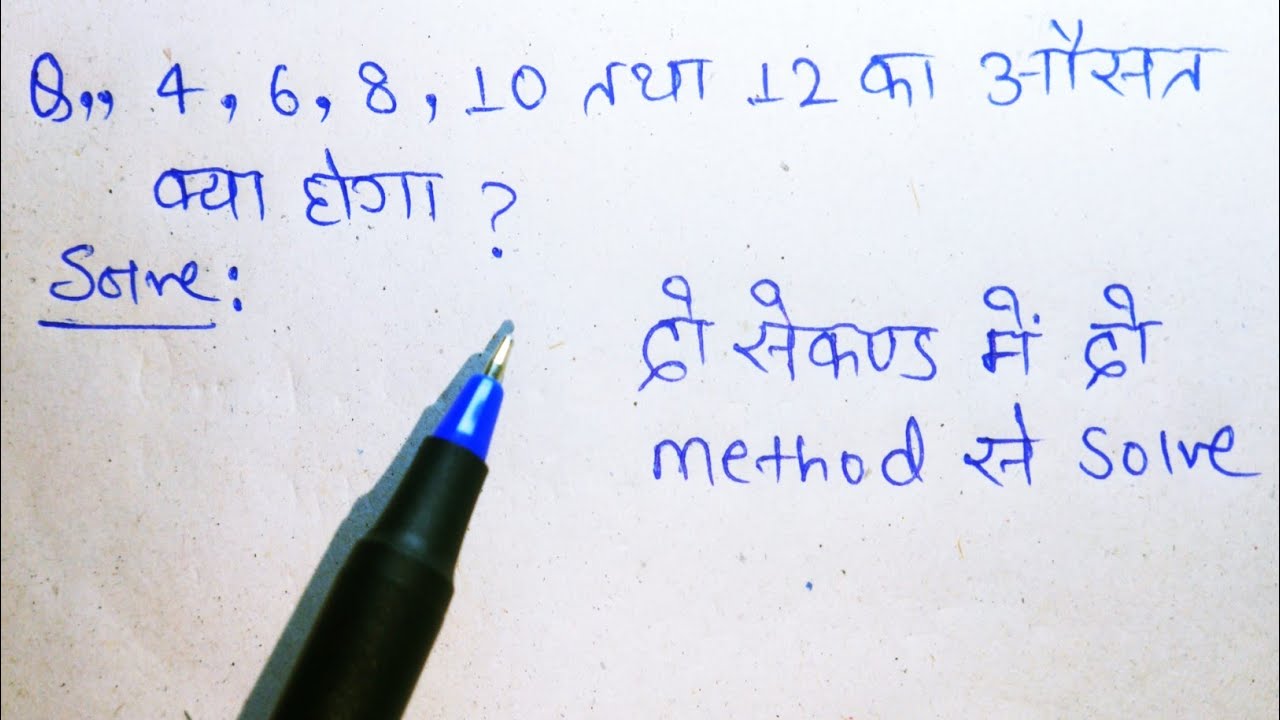 Q,, 4, 6, 8, 10 तथा 12 का औसत
क्या होगा ?
Solve:
दो सेकण्ड में दो
method से solve